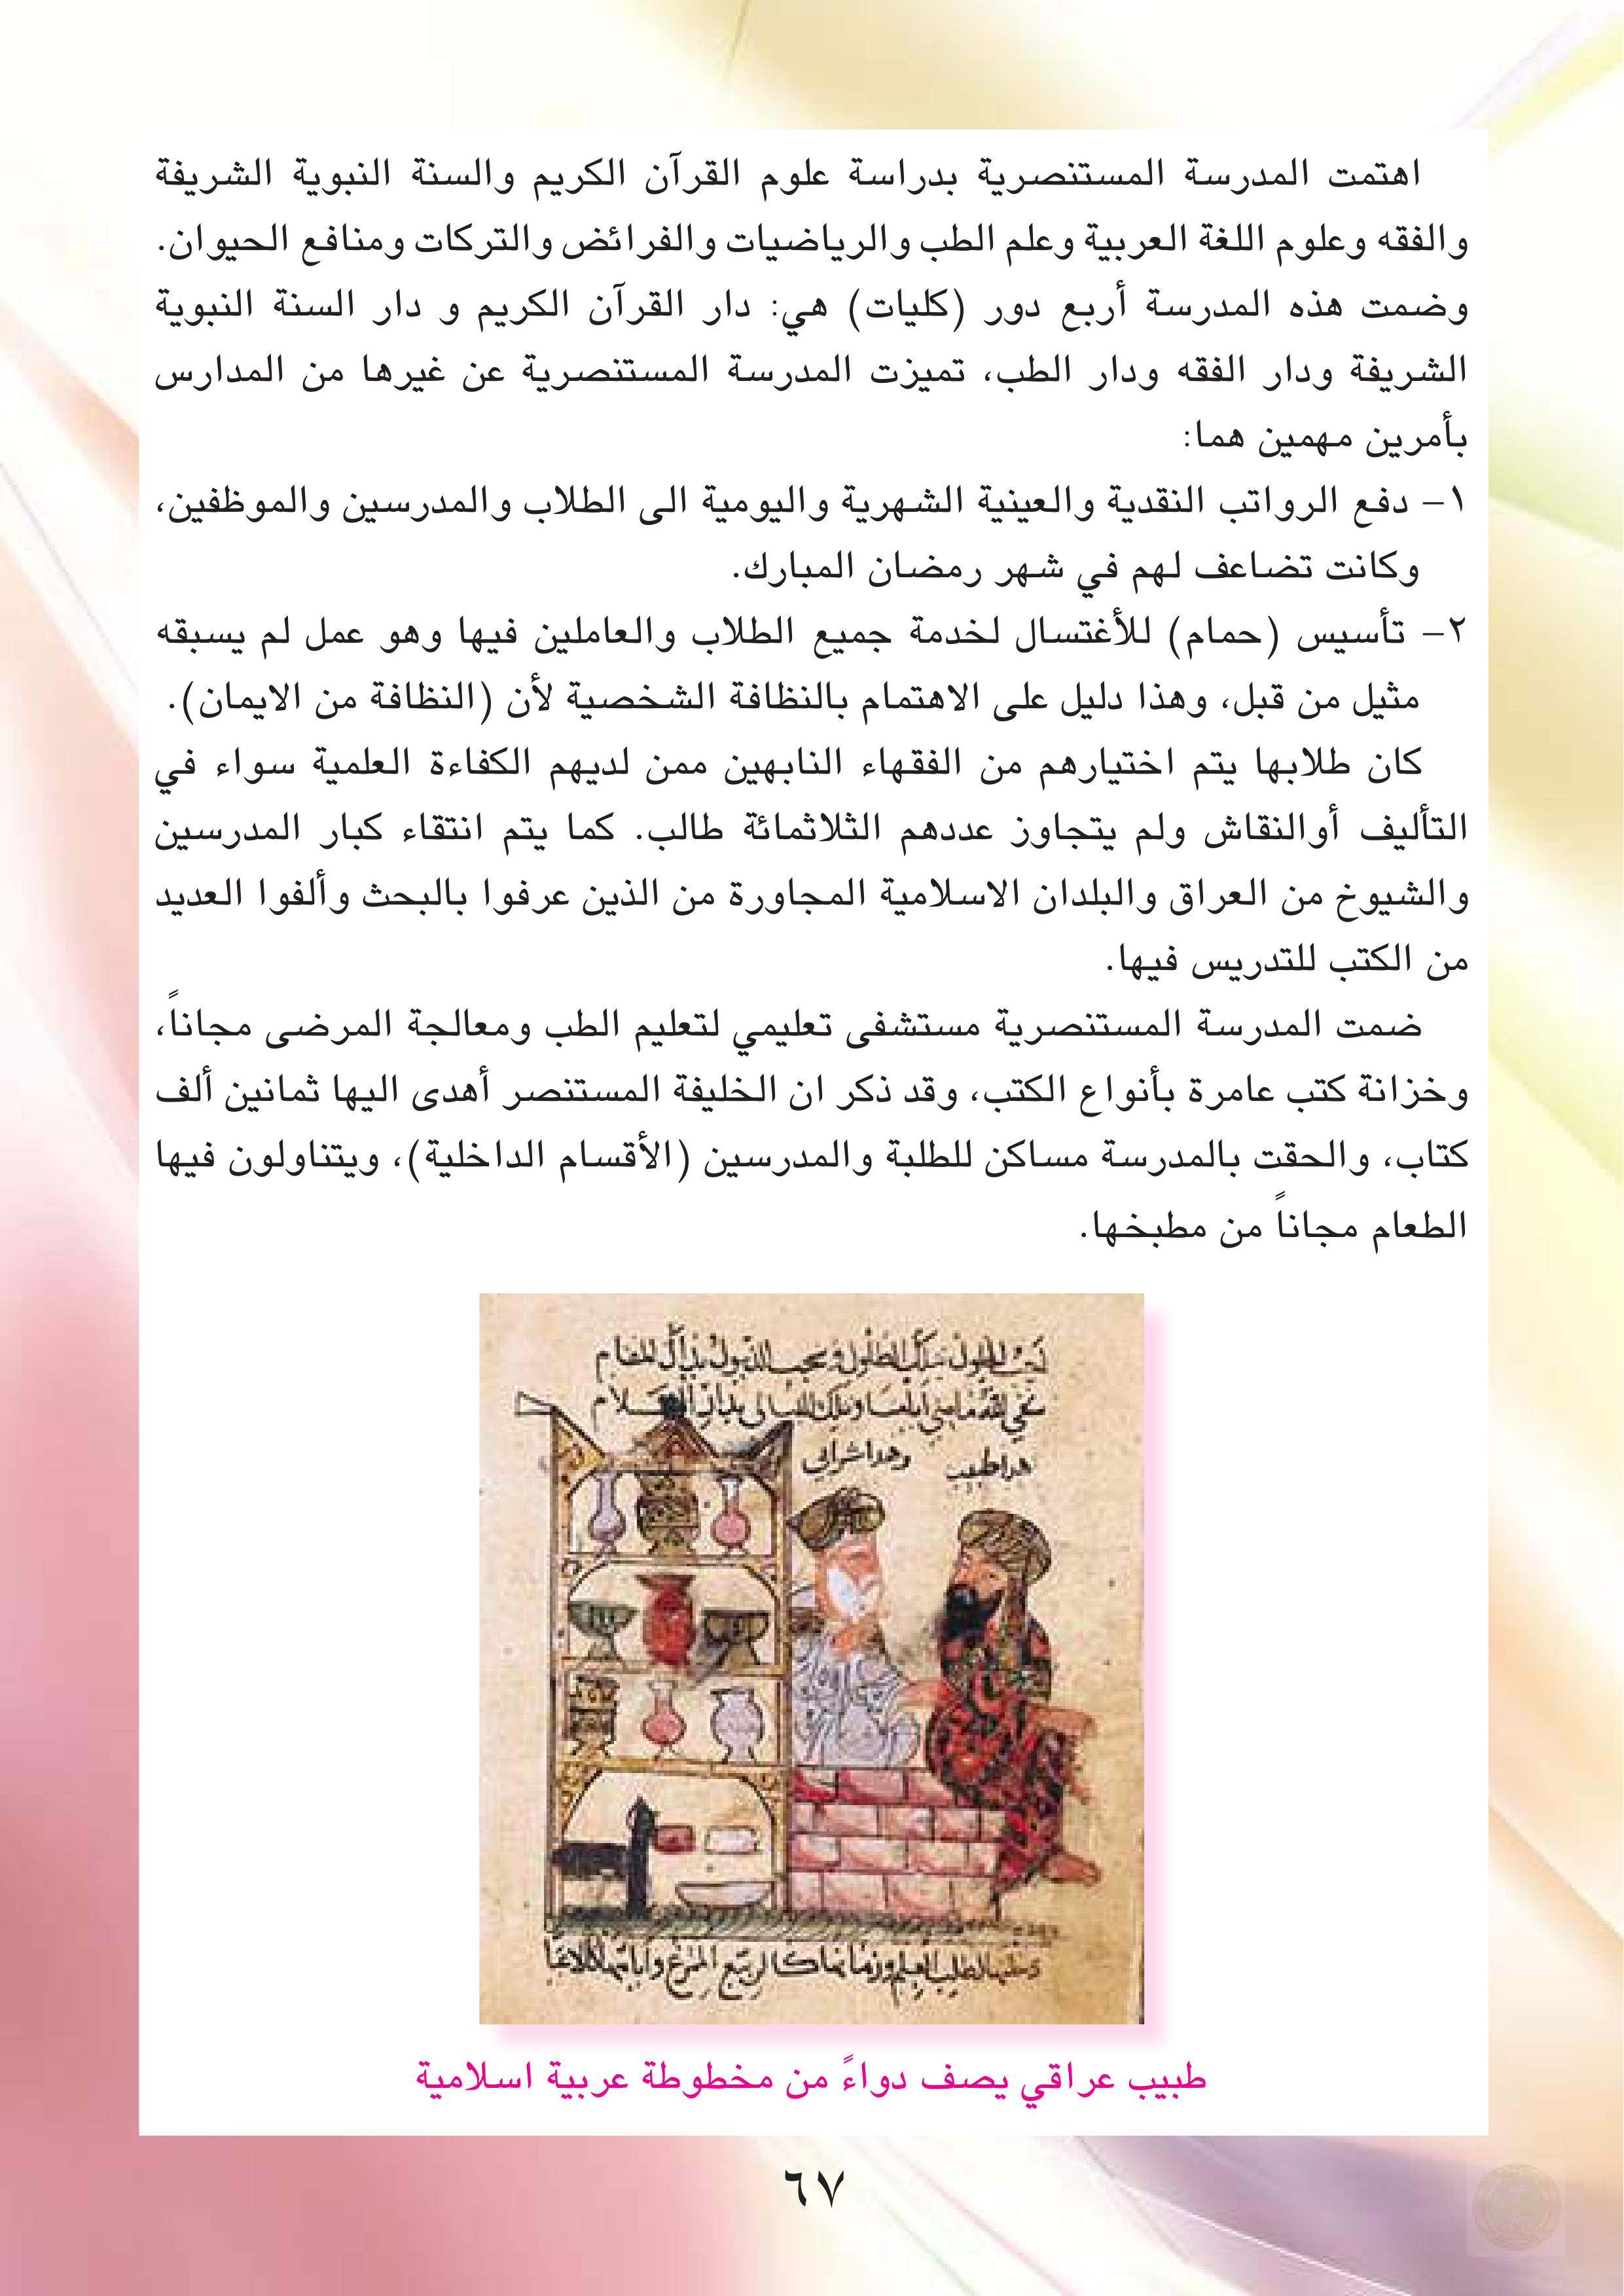 اهتمت المدرسة المستنصرية بدراسة علوم القرآن الكريم والسنة النبوية الشريفة
والفقه وعلوم اللغة العربية وعلم الطب والرياضيات والفرائض والتركات ومنافع الحيوان.
وضمت هذه المدرسة أربع دور (كليات) هي: دار القرآن الكريم و دار السنة النبوية
الشريفة ودار الفقه ودار الطب، تميزت المدرسة المستنصرية عن غيرها من المدارس
بأمرين مهمين هما:
١- دفع الرواتب النقدية والعينية الشهرية واليومية الى الطلاب والمدرسين والموظفين،
وكانت تضاعف لهم في شهر رمضان المبارك.
٢- تأسيس (حمام) للأغتسال لخدمة جميع الطلاب والعاملين فيها وهو عمل لم يسبقه
مثيل من قبل، وهذا دليل على الاهتمام بالنظافة الشخصية لأن (النظافة من الايمان).
كان طلابها يتم اختيارهم من الفقهاء النابهين ممن لديهم الكفاءة العلمية سواء في
التأليف أوالنقاش ولم يتجاوز عددهم الثلاثمائة طالب. كما يتم انتقاء كبار المدرسين
والشيوخ من العراق والبلدان الاسلامية المجاورة من الذين عرفوا بالبحث وألفوا العديد
من الكتب للتدريس فيها.
ضمت المدرسة المستنصرية مستشفى تعليمي لتعليم الطب ومعالجة المرضى مجاناً،
وخزانة كتب عامرة بأنواع الكتب، وقد ذكر ان الخليفة المستنصر أهدى اليها ثمانين ألف
كتاب، والحقت بالمدرسة مساكن للطلبة والمدرسين (الأقسام الداخلية)، ويتناولون فيها
الطعام مجاناً من مطبخها.
هذا طبيب وهذا شرابي
طبيب عراقي يصف دواءً من مخطوطة عربية اسلامية
٦٧